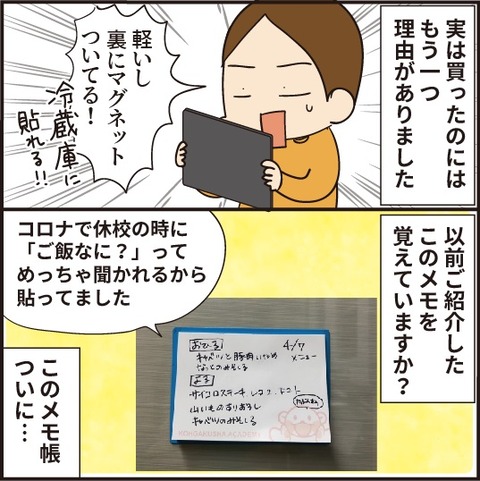 実は買ったのには
もう一つ
理由がありました
軽いし
裏にマグネット
ついてる！
冷蔵庫に
貼れる！！
以前ご紹介した
このメモを
覚えていますか？
コロナで休校の時に
「ご飯なに？」って
めっちゃ聞かれるから
貼ってました
4/7
メニュー
おひる
キャベツと豚肉いため
なっとのみそしる
よる
サイコロステーキ
山いものすりおろし
キャベツのみそしる
このメモ帳
ついに…